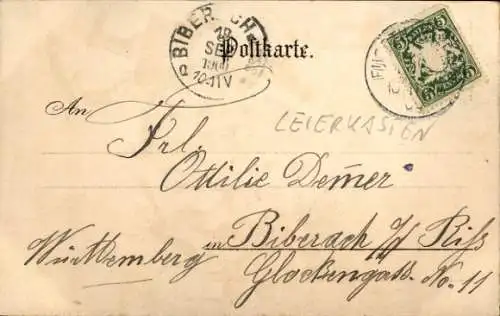 BIBERACH
19
SEP
1900
10-11 V
Postkarte.
5 5
5 5
LEIERKASTEN
An
Frl.
Ottilie Demer
in Biberach a/d Riß
Württemberg
Glockengaß. No. 11